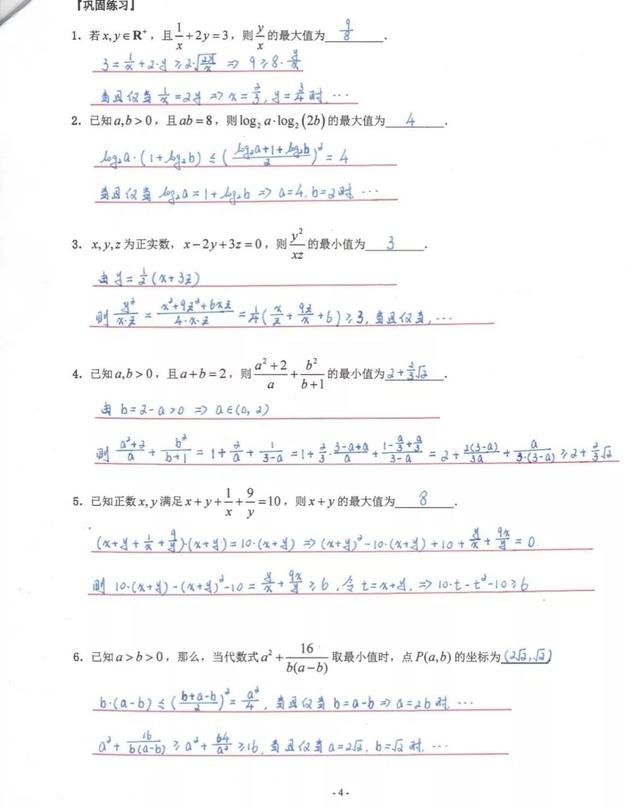 『巩固练习』
1. 若x,y∈R⁺，且1/x+2y=3，则y/x的最大值为 9/8 .
3=1/x+2·y≥2·√(2y/x) ⇒ 9≥8·y/x
当且仅当1/x=2y ⇒ x=2/3, y=3/4时, …
2. 已知a,b>0，且ab=8，则log₂a·log₂(2b)的最大值为 4 .
log₂a·(1+log₂b)≤((log₂a+1+log₂b)/2)²=4
当且仅当log₂a=1+log₂b ⇒ a=4, b=2时, …
3. x,y,z为正实数，x-2y+3z=0，则y²/xz的最小值为 3 .
由y=1/2(x+3z)
则y²/x·z=(x²+9z²+6xz)/4·x·z=1/4(x/z+9z/x+6)≥3, 当且仅当, …
4. 已知a,b>0，且a+b=2，则(a²+2)/a+b²/(b+1)的最小值为 2+2/3√2 .
由b=2-a>0 ⇒ a∈(0, 2)
则(a²+2)/a+b²/(b+1)=1+2/a+1/(3-a)=1+2/3·(3-a+a)/a+(1-a/3+a/3)/(3-a)=2+2(3-a)/3a+a/3·(3-a)≥2+2/3√2
5. 已知正数x,y满足x+y+1/x+9/y=10，则x+y的最大值为 8 .
(x+y+1/x+9/y)·(x+y)=10·(x+y) ⇒ (x+y)²-10·(x+y)+10+y/x+9x/y=0.
则10·(x+y)-(x+y)²-10=y/x+9x/y≥6, 令t=x+y, ⇒ 10·t-t²-10≥6
6. 已知a>b>0，那么，当代数式a²+16/b(a-b)取最小值时，点P(a,b)的坐标为 (2√2,√2)
b·(a-b)≤((b+a-b)/2)²=a²/4, 当且仅当b=a-b ⇒ a=2b时, …
a²+16/b(a-b)≥a²+64/a²≥16, 当且仅当a=2√2, b=√2时, …
- 4 -